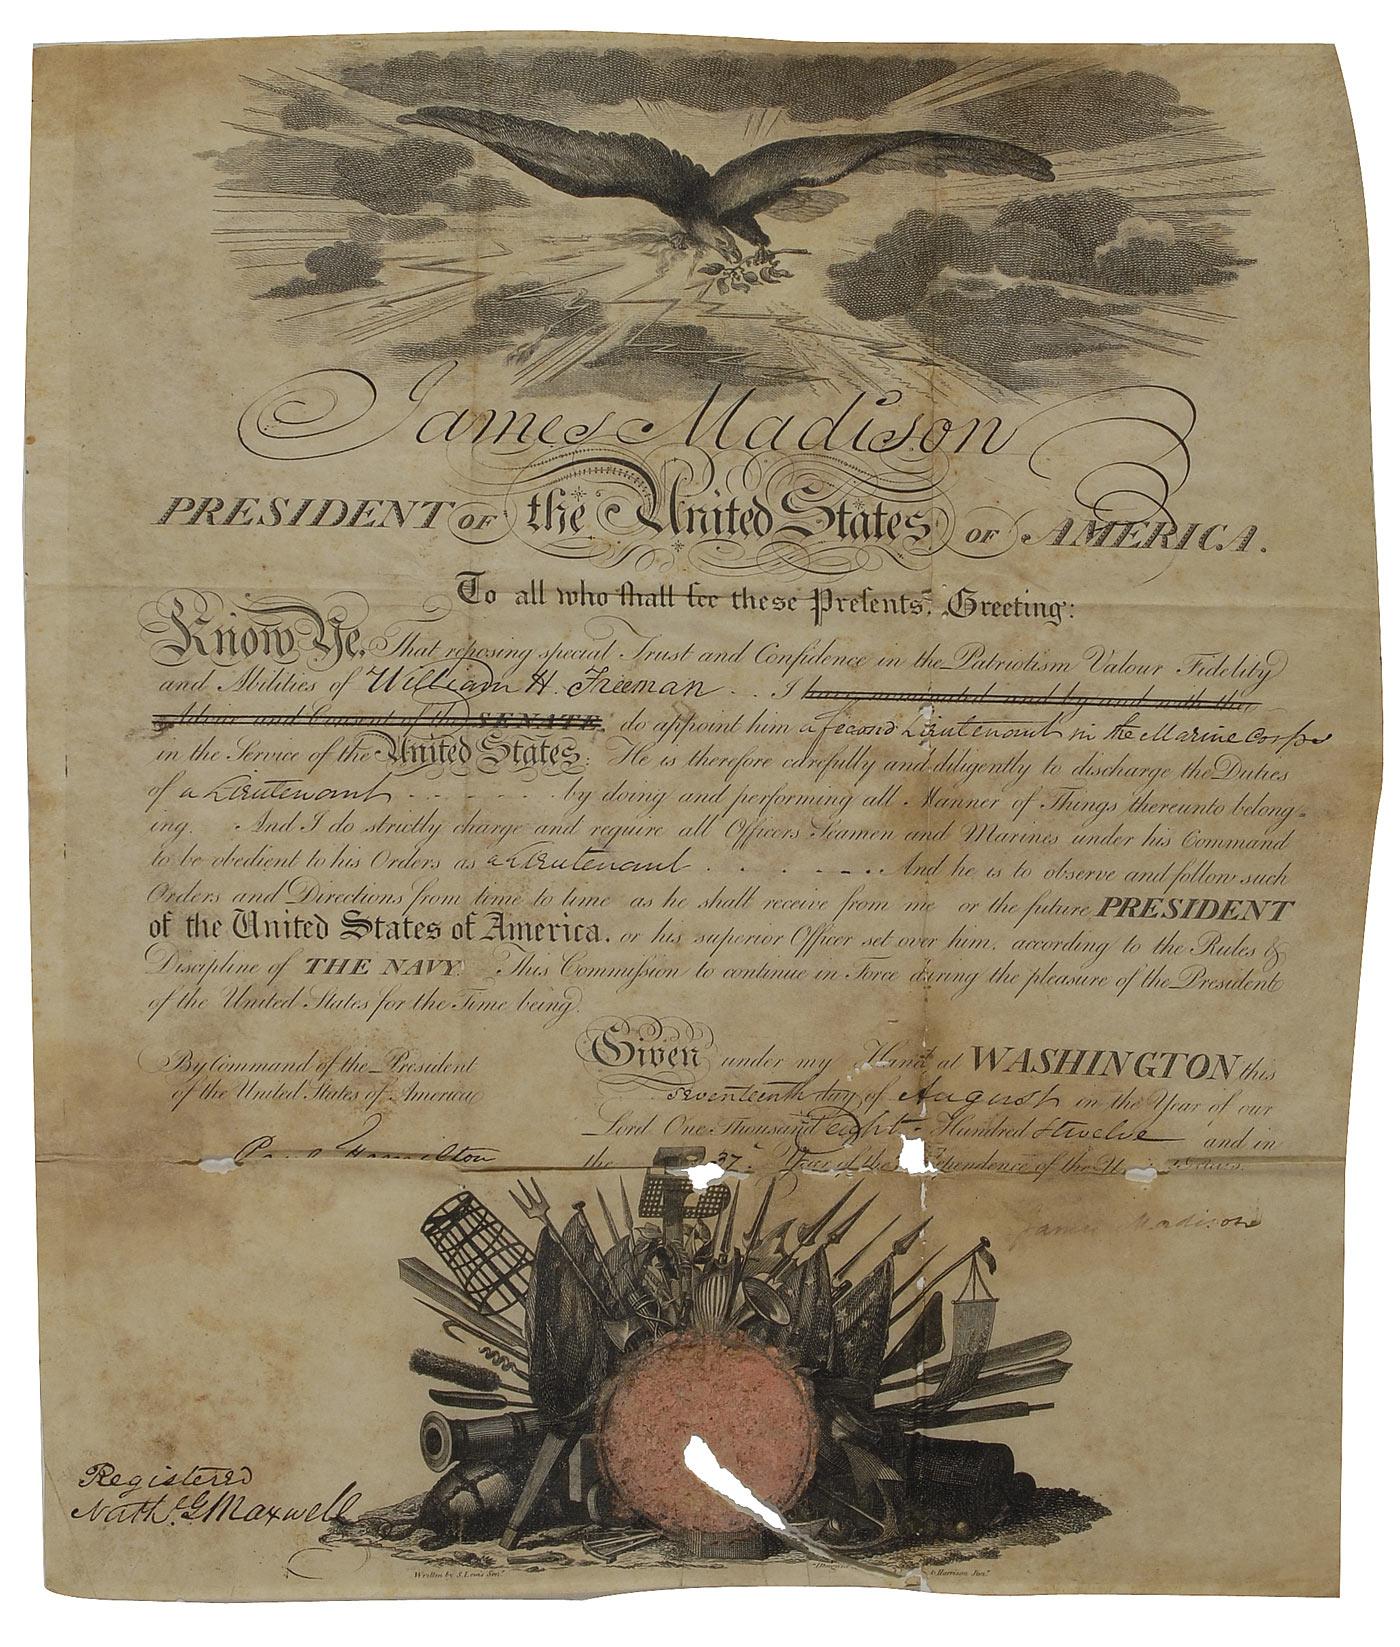 James Madison
PRESIDENT OF the United States OF AMERICA.
To all who shall see these Presents, Greeting:
Know Ye, That reposing special Trust and Confidence in the Patriotism Valour Fidelity
and Abilities of William H. Freeman .. I have nominated and by and with the
advice and Consent of the SENATE, do appoint him a second Lieutenant in the Marine Corps
in the Service of the United States: He is therefore carefully and diligently to discharge the Duties
of a Lieutenant - - - - - - by doing and performing all Manner of Things thereunto belong=
ing. And I do strictly charge and require all Officers Seamen and Marines under his Command
to be obedient to his Orders as a Lieutenant . . . . . . . . And he is to observe and follow such
Orders and Directions from time to time as he shall receive from me or the future PRESIDENT
of the United States of America, or his superior Officer set over him, according to the Rules &
Discipline of THE NAVY. This Commission to continue in Force during the pleasure of the President
of the United States for the Time being.
By Command of the President
of the United States of America
Paul Hamilton
Given under my Hand at WASHINGTON this
Seventeenth day of August in the Year of our
Lord One Thousand eight Hundred & twelve and in
the 37th Year of the Independence of the States.
James Madison
Registered
Nath. G Maxwell
Written by S. Lewis Sen.r
Harrison Jun.r